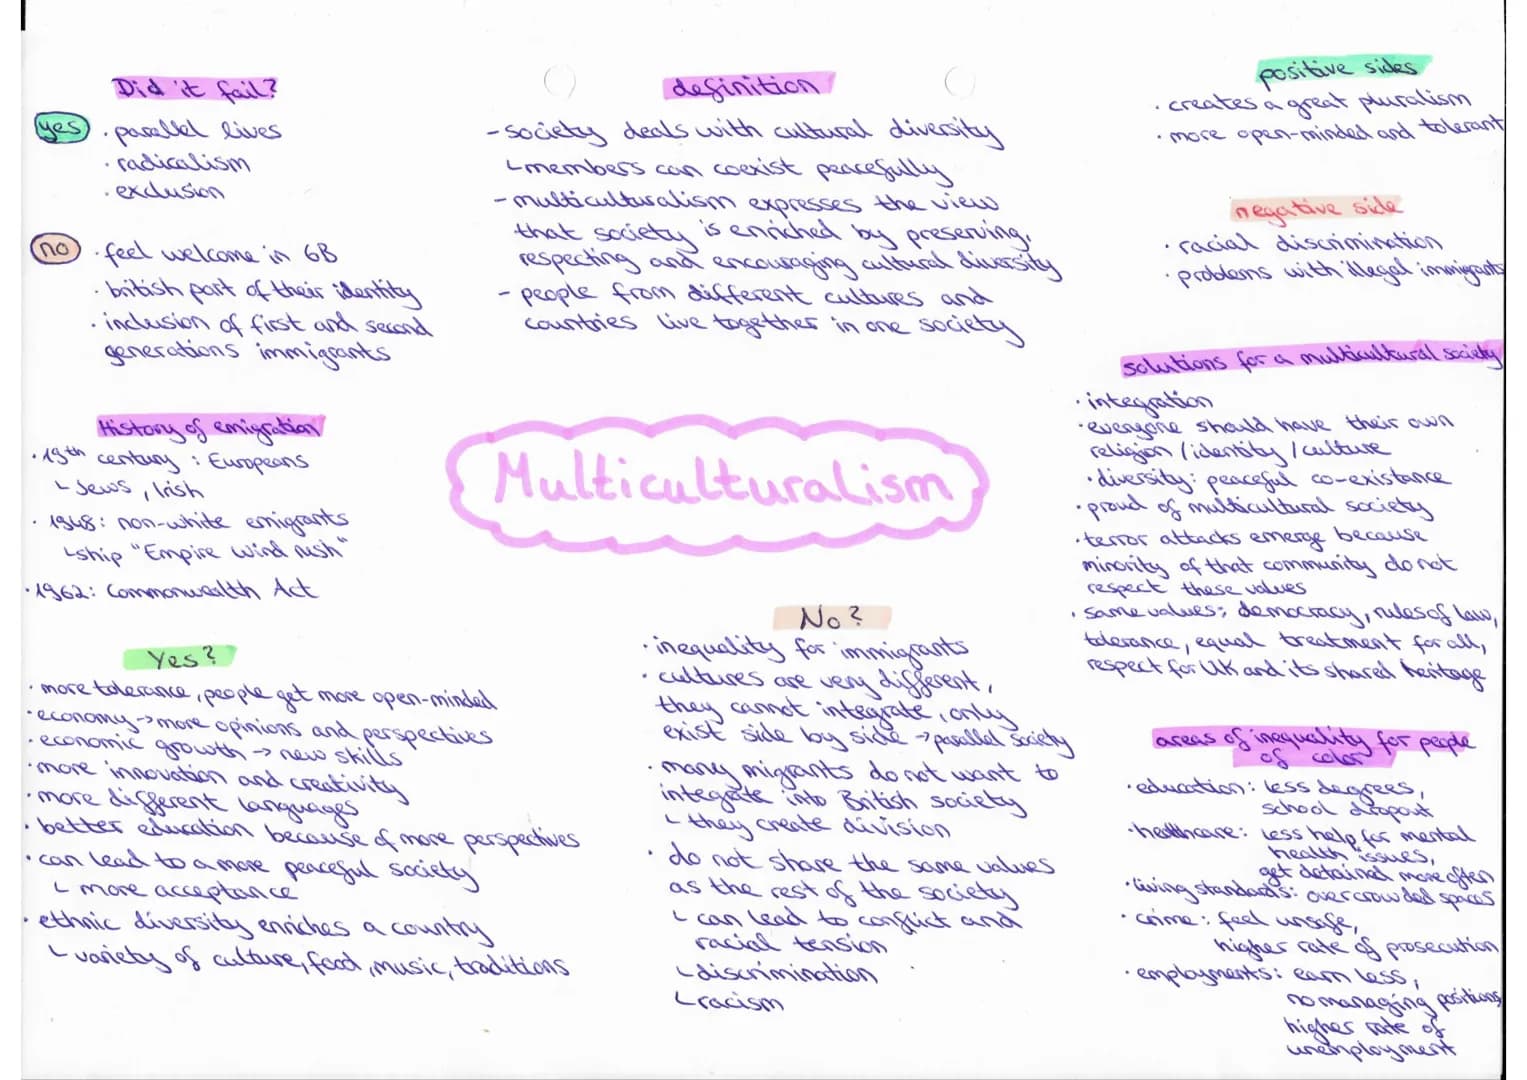 Did it fail?
yes
· parallel lives
· radicalism
· exclusion
no
· feel welcome in GB
· british part of their identity
· inclusion of first and second
generations immigrants
History of emigration
· 19th century : Europeans
└ Jews, Irish
· 1948: non-white emigrants
└ ship "Empire wind rush"
· 1962: Commonwealth Act
Yes?
· more tolerance, people get more open-minded
· economy -> more opinions and perspectives
· economic growth -> new skills
· more innovation and creativity
· more different languages
· better education because of more perspectives
· can lead to a more peaceful society
└ more acceptance
· ethnic diversity enriches a country
└ variety of culture, food, music, traditions
definition
- society deals with cultural diversity
└ members can coexist peacefully
- multiculturalism expresses the view
that society is enriched by preserving,
respecting and encouraging cultural diversity
- people from different cultures and
countries live together in one society
Multiculturalism
No?
· inequality for immigrants
· cultures are very different,
they cannot integrate, only
exist side by side -> parallel society
· many migrants do not want to
integrate into British society
└ they create division
· do not share the same values
as the rest of the society
└ can lead to conflict and
racial tension
└ discrimination
└ racism
positive sides
· creates a great pluralism
· more open-minded and tolerant
negative side
· racial discrimination
· problems with illegal immigrants
solutions for a multicultural society
· integration
· everyone should have their own
religion / identity / culture
· diversity: peaceful co-existance
· proud of multicultural society
· terror attacks emerge because
minority of that community do not
respect these values
· same values: democracy, rules of law,
tolerance, equal treatment for all,
respect for UK and its shared heritage
areas of inequality for people
of color
· education: less degrees,
school dropout
· healthcare: less help for mental
health issues,
get detained more often
· living standards: overcrowded spaces
· crime: feel unsafe,
higher rate of prosecution
· employments: earn less,
no managing positions,
higher rate of
unemployment